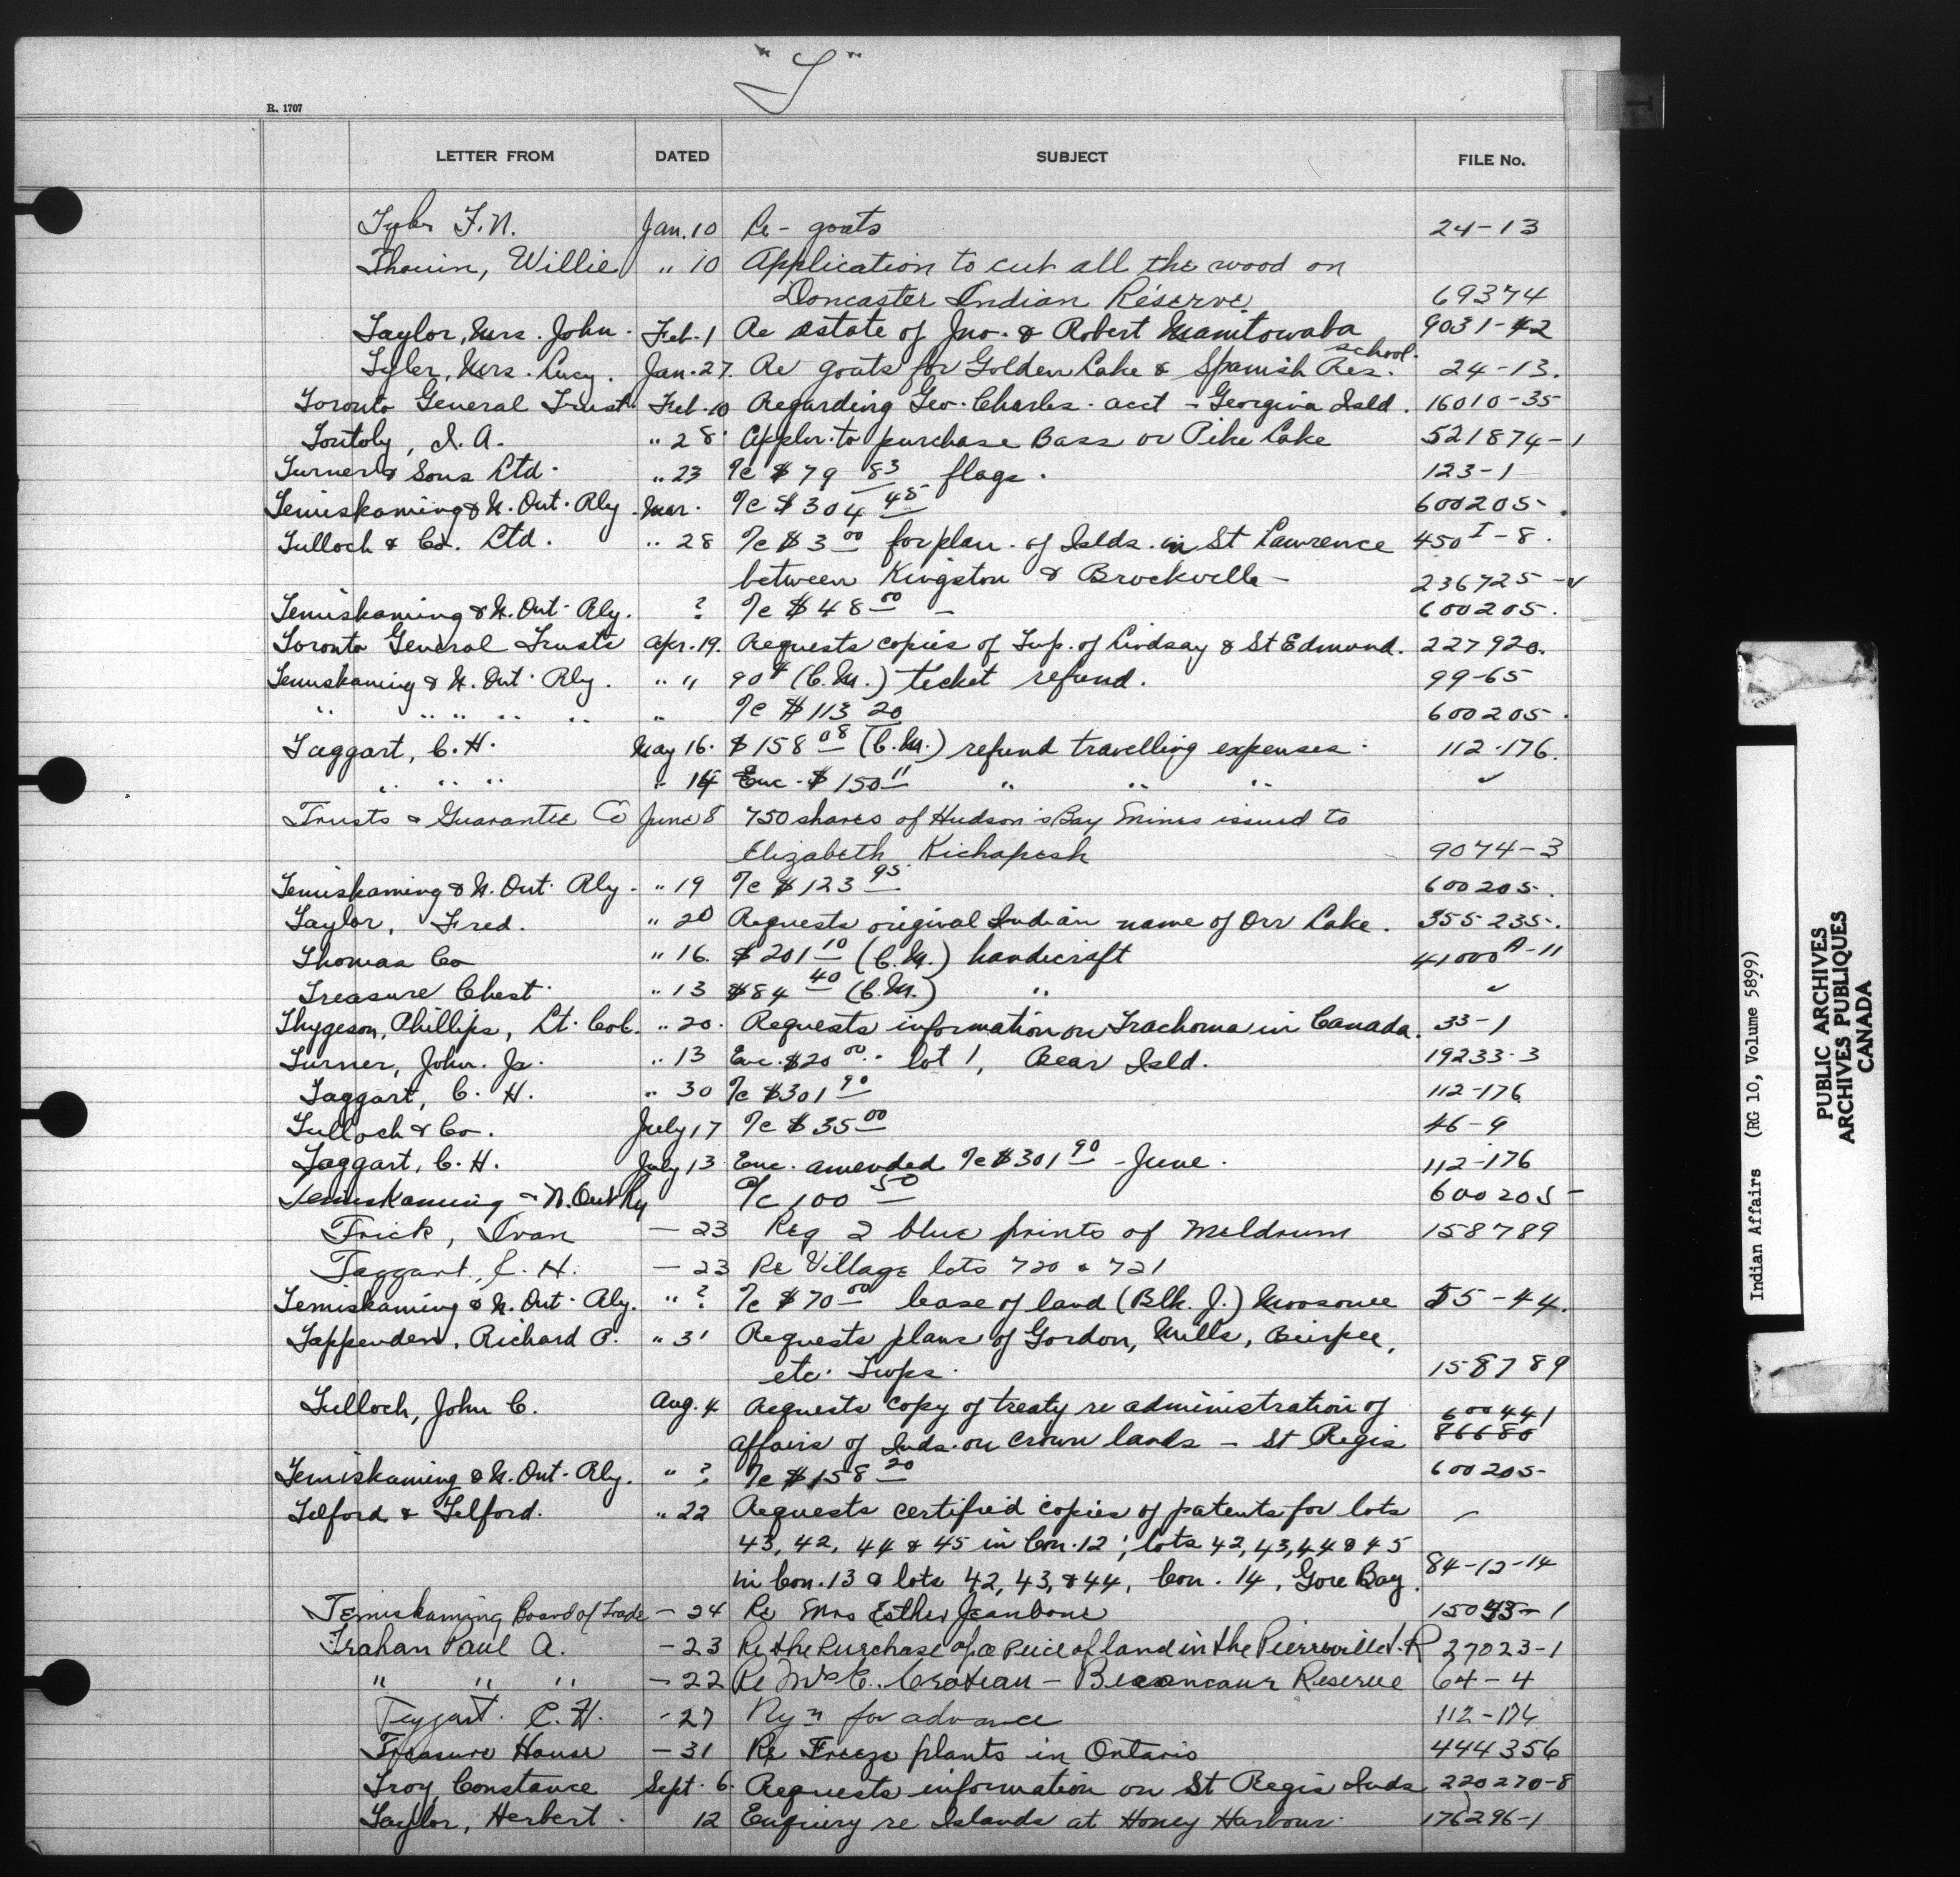 "T"
R. 1707
LETTER FROM DATED SUBJECT FILE No.
Tyler F.N. Jan. 10 Re - goats 24-13
Thouin, Willie " 10 Application to cut all the wood on
Doncaster Indian Reserve. 69374
Taylor, Mrs. John. Feb. 1 Re estate of Jno. & Robert Manitowaba 9031-42
Tyler, Mrs. Lucy. Jan. 27. Re goats for Golden Lake & Spanish Res. school. 24-13.
Toronto General Trust. Feb. 10 Regarding Geo. Charles. acct - Georgina Isld. 16010-35
Toutoly, I. A. " 28. Appln. to purchase Bass or Pike Lake 521874-1
Turner & Sons Ltd. " 23 %c $79 83 flags. 123-1
Temiskaming & N. Ont. Rly. Mar. %c $304 45 600205.
Tulloch & Co. Ltd. " 28 %c $3 00 for plan. of Islds. in St Lawrence 450 I-8.
between Kingston & Brockville - 236725-
Temiskaming & N. Ont. Rly. ? %c $48 00 - 600205.
Toronto General Trusts Apr. 19. Requests copies of Twp. of Lindsay & St Edmund. 227920.
Temiskaming & N. Ont. Rly. " " 90¢ (C.M.) ticket refund. 99-65
" " " " " " %c $113 20 600205.
Taggart, C. H. May 16. $158 08 (C.M.) refund travelling expenses. 112-176.
" " " " 14 Enc. $150 11 " " " ✓
Trusts & Guarantee Co June 8 750 shares of Hudson's Bay Mines issued to
Elizabeth Kichapesh 9074-3
Temiskaming & N. Ont. Rly. " 19 %c $123 95 600205.
Taylor, Fred. " 20 Requests original Indian name of Orr Lake. 355235.
Thomas Co " 16. $201 10 (C.M.) handicraft 41000 A-11
Treasure Chest. " 13 $84 40 (C.M.) " ✓
Thygeson, Phillips, Lt. Col. " 20. Requests information on Trachoma in Canada. 33-1
Turner, John. Jr. " 13 Enc. $20 00.. lot 1, Bear Isld. 19233-3
Taggart, C. H. " 30 %c $301 90 112-176
Tulloch & Co. July 17 %c $35 00 46-9
Taggart, C. H. July 13 Enc. amended %c $301 90 - June. 112-176
Temiskaming & N. Ont Ry %c 100 50 600205-
Trick, Ivan - 23 Req 2 blue prints of Meldrum 158789
Taggart, C. H. - 23 Re Village lots 720 & 721
Temiskaming & N. Ont. Rly. " ? %c $70 00 lease of land (Blk. J.) Moosonee 55-44.
Tappenden, Richard P. " 31 Requests plans of Gordon, Mills, Burpee,
etc. Twps. 158789
Tulloch, John C. Aug. 4 Requests copy of treaty re administration of 600441
affairs of Inds. on crown lands - St Regis 86680
Temiskaming & N. Ont. Rly. " ? %c $158 20 600205-
Telford & Telford. " 22 Requests certified copies of patents for lots -
43, 42, 44 & 45 in Con. 12; lots 42, 43, 44 & 45
in Con. 13 & lots 42, 43, & 44, Con. 14, Gore Bay. 84-12-14
Temiskaming Board of Trade - 24 Re Mrs Esther Jeanbone 15043-1
Trahan Paul A. - 23 Re the Purchase of a Peice of land in the Pierreville I.R 27023-1
" " " - 22 Re Croteau - Becancour Reserve 64-4
Taggart. C. H. - 27 Ryn for advance 112-176
Treasure House - 31 Re Freeze plants in Ontario 444356
Troy Constance Sept. 6. Requests information on St Regis Inds 220270-8
Taylor, Herbert. 12 Enquiry re Islands at Honey Harbour. 176296-1
T
Indian Affairs (RG 10, Volume 5899)
PUBLIC ARCHIVES
ARCHIVES PUBLIQUES
CANADA